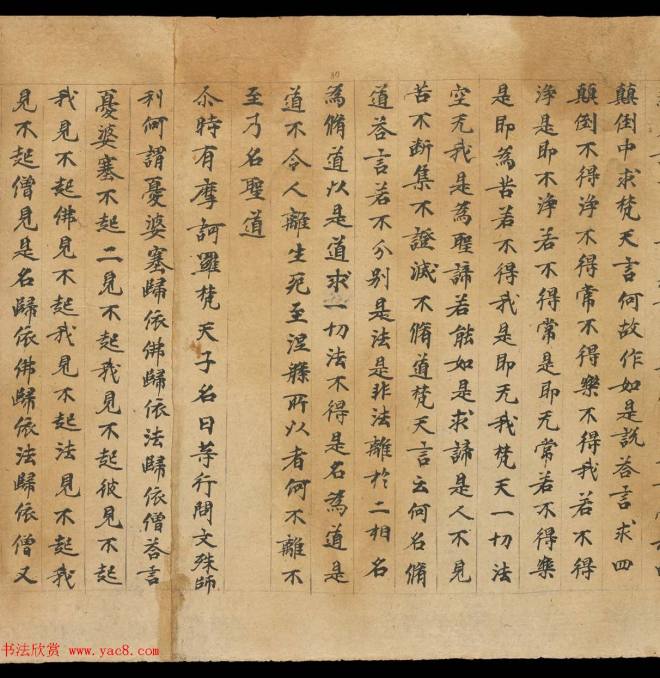 顛倒中求梵天言何故作如是說荅言求四
顛倒不得淨不得常不得樂不得我若不得
淨是即不淨若不得常是即无常若不得樂
是即為苦若不得我是即无我梵天一切法
空无我是為聖諦若能如是求諦是人不見
苦不斷集不證滅不脩道梵天言云何名脩
道荅言若不分別是法是非法離於二相名
為脩道以是道求一切法不得是名為道是
道不令人離生死至涅槃所以者何不離不
至乃名聖道
尒時有摩訶羅梵天子名曰等行問文殊師
利何謂憂婆塞歸依佛歸依法歸依僧荅言
憂婆塞不起二見不起我見不起彼見不起
我見不起佛見不起我見不起法見不起我
見不起僧見是名歸依佛歸依法歸依僧又
书法欣赏 www.yac8.com